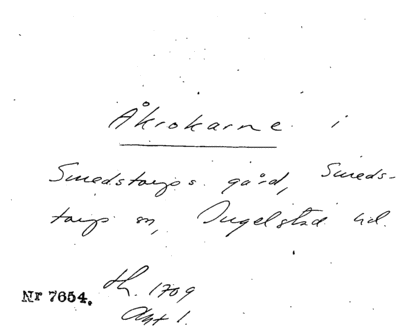 Åkrokarne i
Smedstorps gård, Smeds-
torp sn, Ingelstad hd.
Nr 7654.
th. 1709
Akt 1.